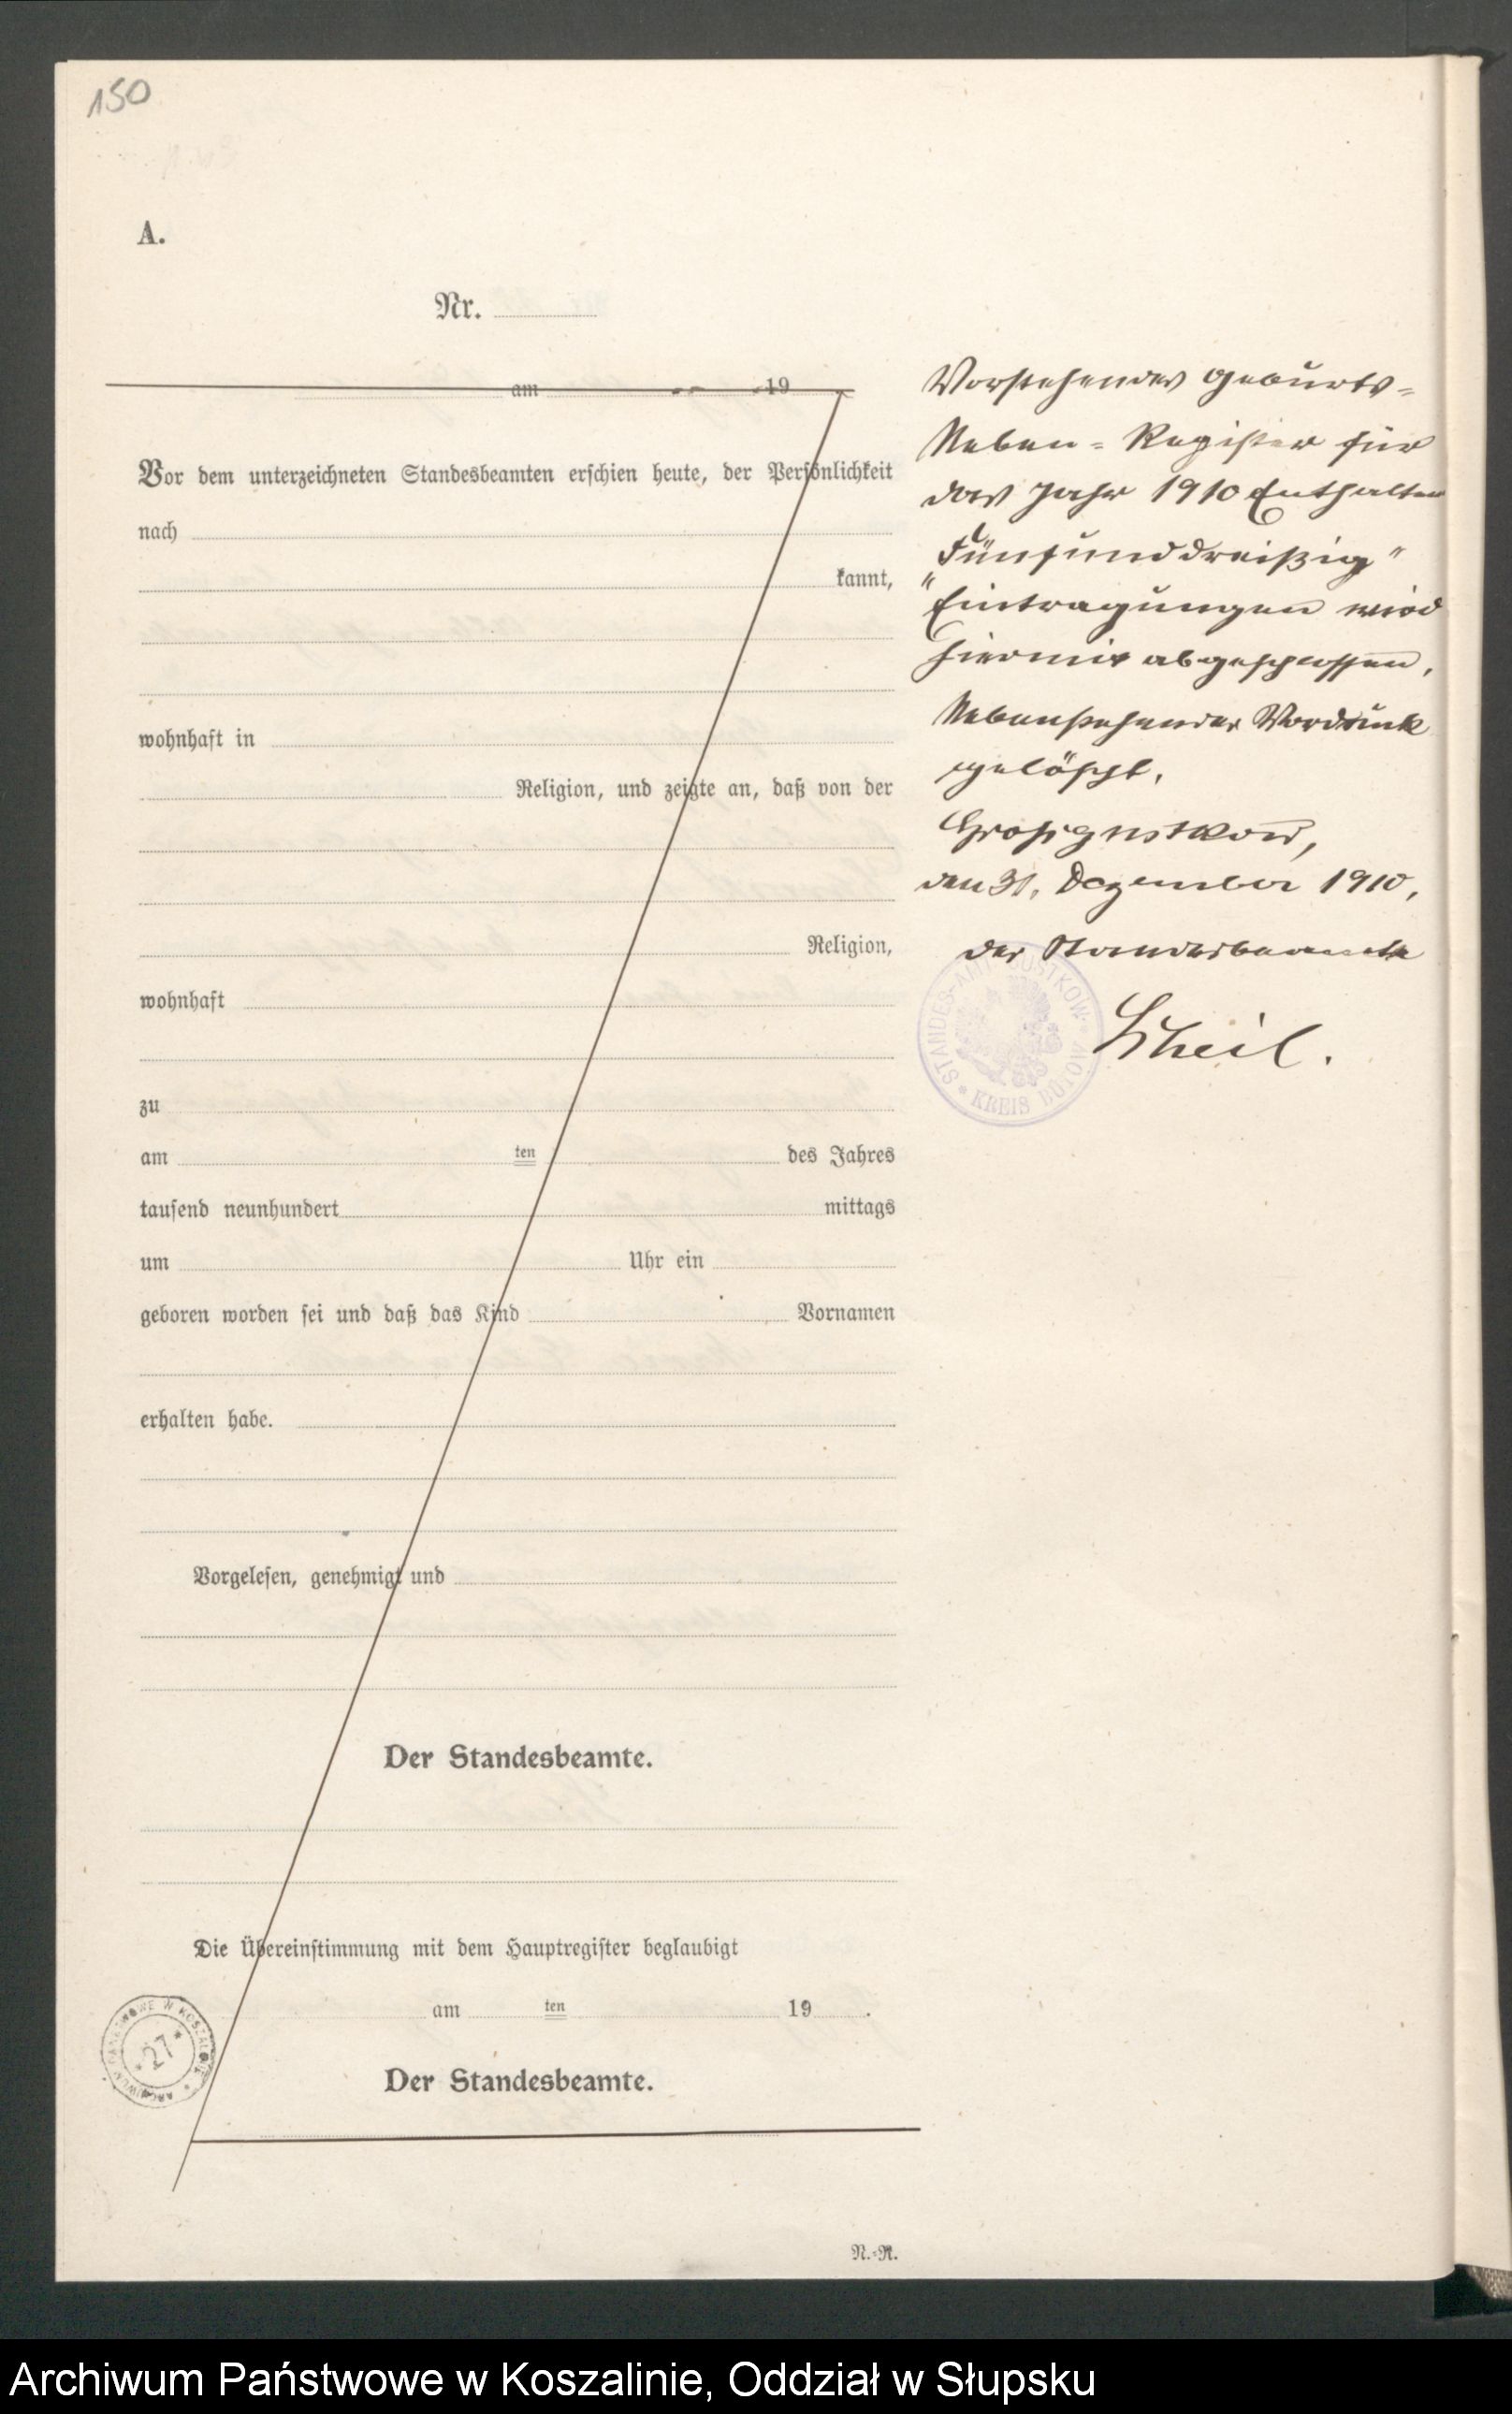 150
A.
Nr.
am 19
Vor dem unterzeichneten Standesbeamten erschien heute, der Persönlichkeit
nach
kannt,
wohnhaft in
Religion, und zeigte an, daß von der
Religion,
wohnhaft
zu
am ten des Jahres
tausend neunhundert mittags
um Uhr ein
geboren worden sei und daß das Kind Vornamen
erhalten habe.
Vorgelesen, genehmigt und
Der Standesbeamte.
Die Übereinstimmung mit dem Hauptregister beglaubigt
am ten 19 .
Der Standesbeamte.
N.-R.
Vorstehendes Geburts-
Neben-Register für
das Jahr 1910 Enthalten
"Fünfunddreißig"
Eintragungen wird
hiermit abgeschlossen.
Nebenstehender Vordruck
gelöscht.
den 31. Dezember 1910.
Der Standesbeamte
Scheil.
STANDES-AMT KREIS BÜTOW
ARCHIWUM PAŃSTWOWE W KOSZALINIE
* 27 *
Archiwum Państwowe w Koszalinie, Oddział w Słupsku